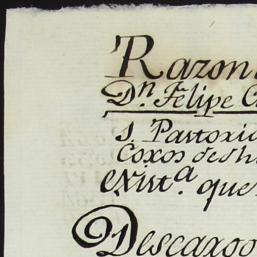 Razon
Dn. Felipe
s. Pastoxi
Coxos desh
exist.a que
Descargo